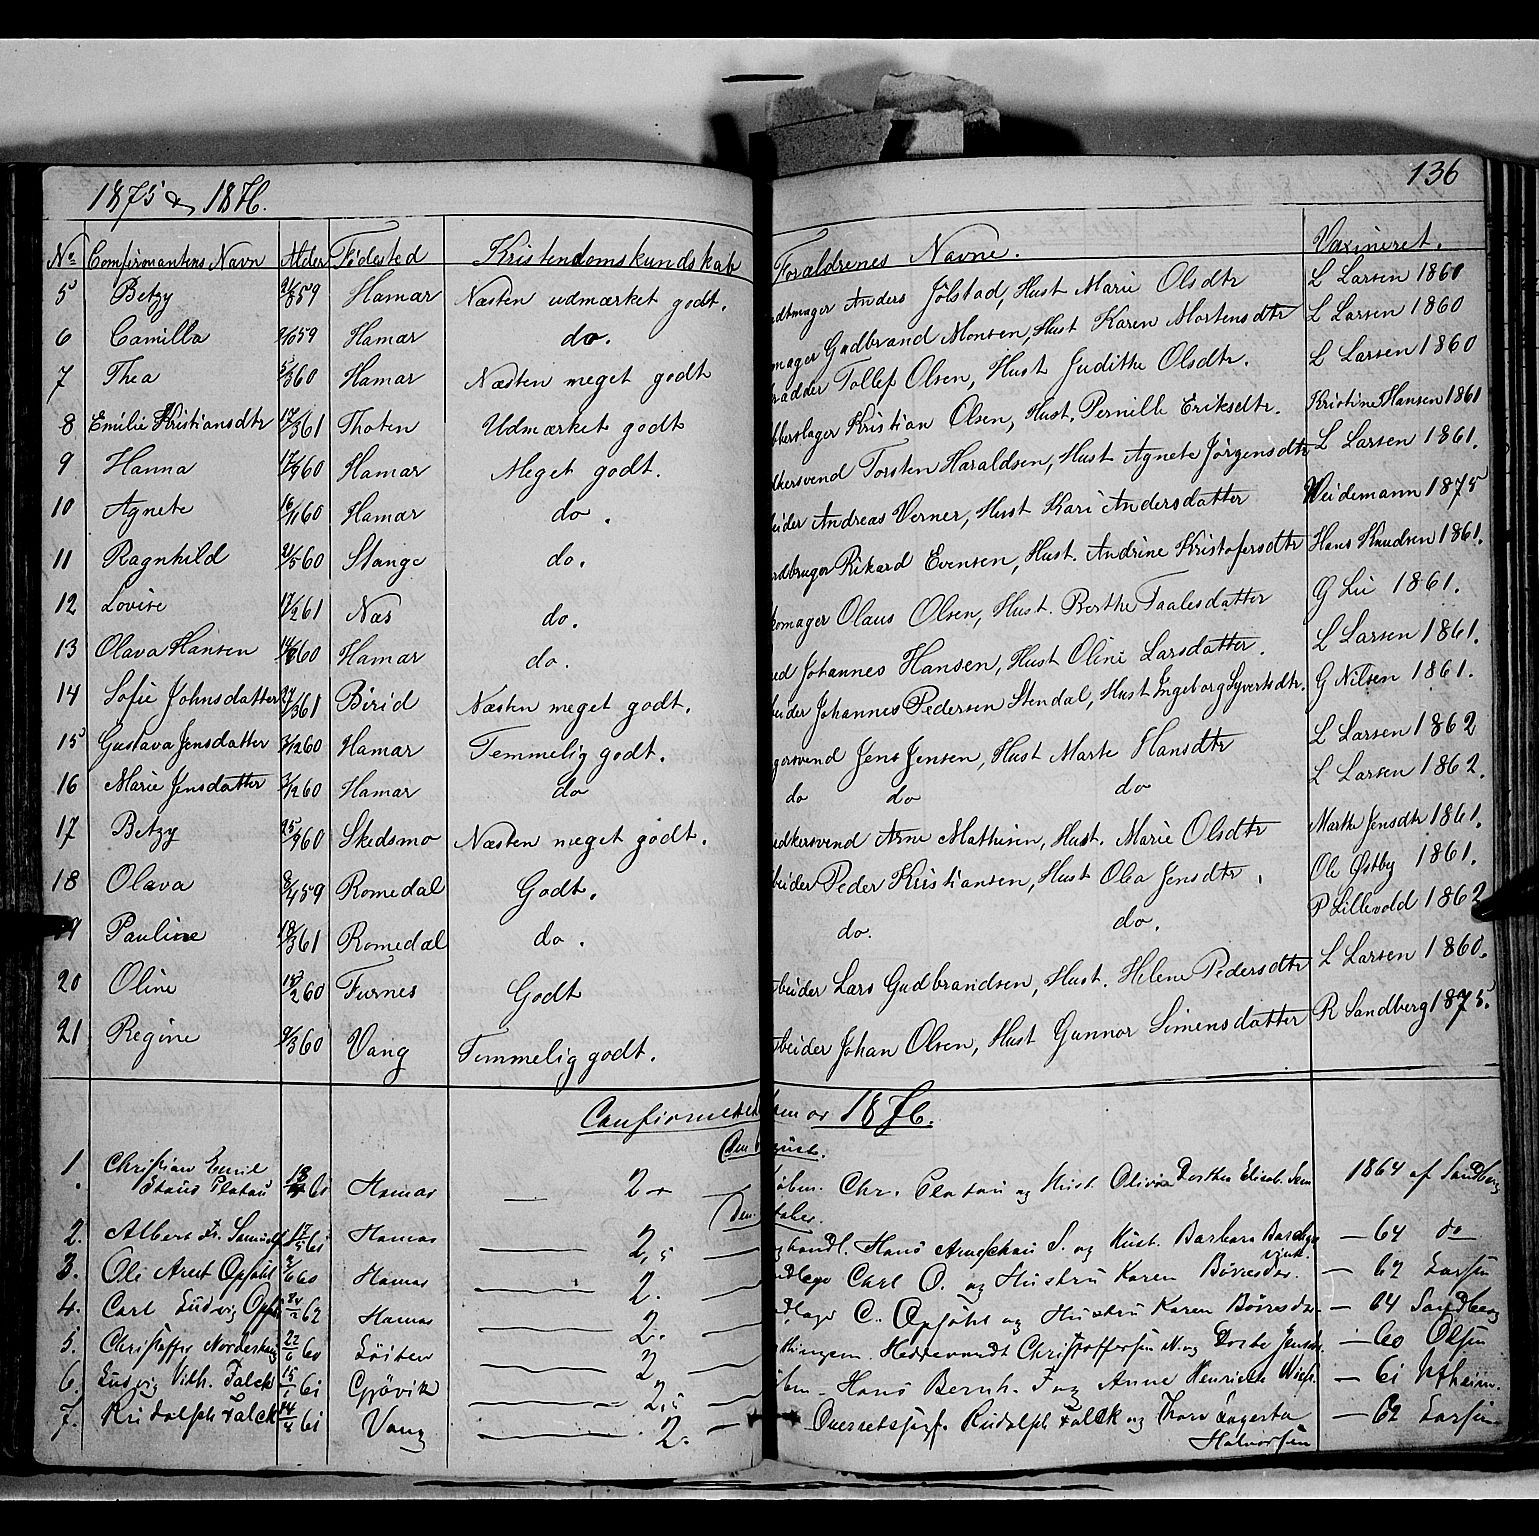 1875 & 1876.
136
No. Confirmantens Navn Alder Fødested Kristendomskundskab Forældrenes Navne. Vaxineret.
5 Betzy 59 Hamar Næsten udmærket godt. Anders Jölstad, Hust Marie Olsdtr L Larsen 1860
6 Camilla 59 Hamar do. Gudbrand Monsen, Hust Karen Mortensdtr L Larsen 1860
7 Thea 60 Hamar Næsten meget godt Tollef Olsen, Hust Judithe Olsdtr. L Larsen 1860
8 Emilie Kristiansdtr 17/3 61 Thoten Udmærket godt Kristian Olsen, Hust. Pernille Eriksdtr. Kristine Hansen 1861
9 Hanna 60 Hamar Meget godt. Torsten Haraldsen, Hust Agnete Jörgensdtr L Larsen 1861.
10 Agnete 16/11 60 Hamar do. Andreas Verner, Hust Kari Andersdatter Weidemann 1875
11 Ragnhild 21/5 60 Stange do. Rikard Evensen, Hust. Andrine Kristofersdtr Hans Knudsen 1861.
12 Lovise 17/2 61 Næs do. Olaus Olsen, Hust. Berthe Taalesdatter G Lie 1861.
13 Olava Hansen 60 Hamar do. Johannes Hansen, Hust Oline Larsdatter. L Larsen 1861.
14 Sofie Johnsdatter 27/3 61 Birid Næsten meget godt. Johannes Pedersen Stendal, Hust Ingeborg Syvertsdtr. G Nilsen 1861.
15 Gustava Jensdatter 3/12 60 Hamar Temmelig godt. Jens Jensen, Hust Marte Hansdtr L Larsen 1862
16 Marie Jensdatter 3/12 60 Hamar do do do do L Larsen 1862.
17 Betzy 25/9 60 Skedsmo Næsten meget godt. Arne Mathisen, Hust. Marie Olsdtr Marthe Jensdtr 1861.
18 Olava 59 Romedal Godt. Peder Kristiansen, Hust Olea Jensdtr. Ole Østby 1861.
19 Pauline 18/3 61 Romedal do. do. do. P Lillevold 1862
20 Oline 60 Furnes Godt Lars Gudbrandsen, Hust. Helene Pedersdtr L Larsen 1860.
21 Regine 60 Vang Temmelig godt. Johan Olsen, Hust Gunnor Simensdatter R Sandberg 1875.
1876.
1. Christian Emil
Platou 61 Hamar 2 Chr. Platou og Hust Oliva Dorthea Elisab. 1864 af Sandberg
2. Albert Fr. 61 Hamar 2,5 Hans S. og Hust. Barbara — 64 do
3. Ole Arnt Opsahl 60 Hamar 2. Carl O. og Hustru Karen — 62 Larsen
4. Carl Ludvig 62 Hamar 2. C. Opsahl og Hustru Karen — 64 Sandberg
5. 22/6 60 Löiten 2 — 60 Olsen
6. Ludvig Vilh. Falck 15/1 61 Gjövik 2,5 Hans Bernh. F. og Anne Henriette — 61
7. Rudolph Falck 61 Vang 2. Rudolph Falck og Thora — 62 Larsen
Halvorsen